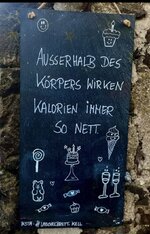 AUSSERHALB DES
KÖRPERS WIRKEN
KALORIEN IMMER
SO NETT